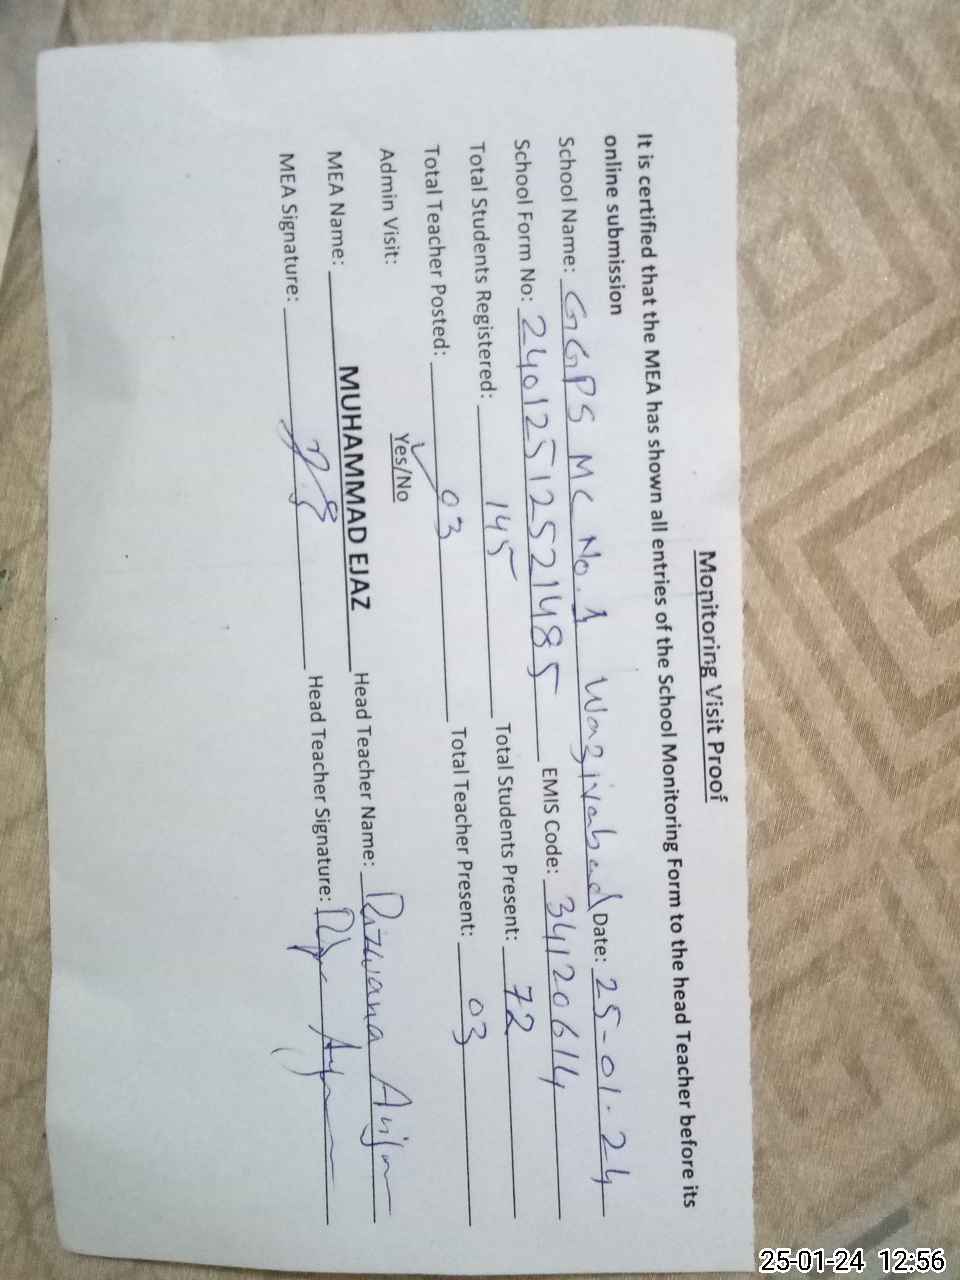 Monitoring Visit Proof
It is certified that the MEA has shown all entries of the School Monitoring Form to the head Teacher before its
online submission
School Name: GGPS MC No.1 Wazirabad Date: 25-01-24
School Form No: 24012512521485 EMIS Code: 34120614
Total Students Registered: 145 Total Students Present: 72
Total Teacher Posted: 03 Total Teacher Present: 03
Admin Visit: Yes/No
MEA Name: MUHAMMAD EJAZ Head Teacher Name: Rizwana Anjm
MEA Signature: Head Teacher Signature:
25-01-24 12:56